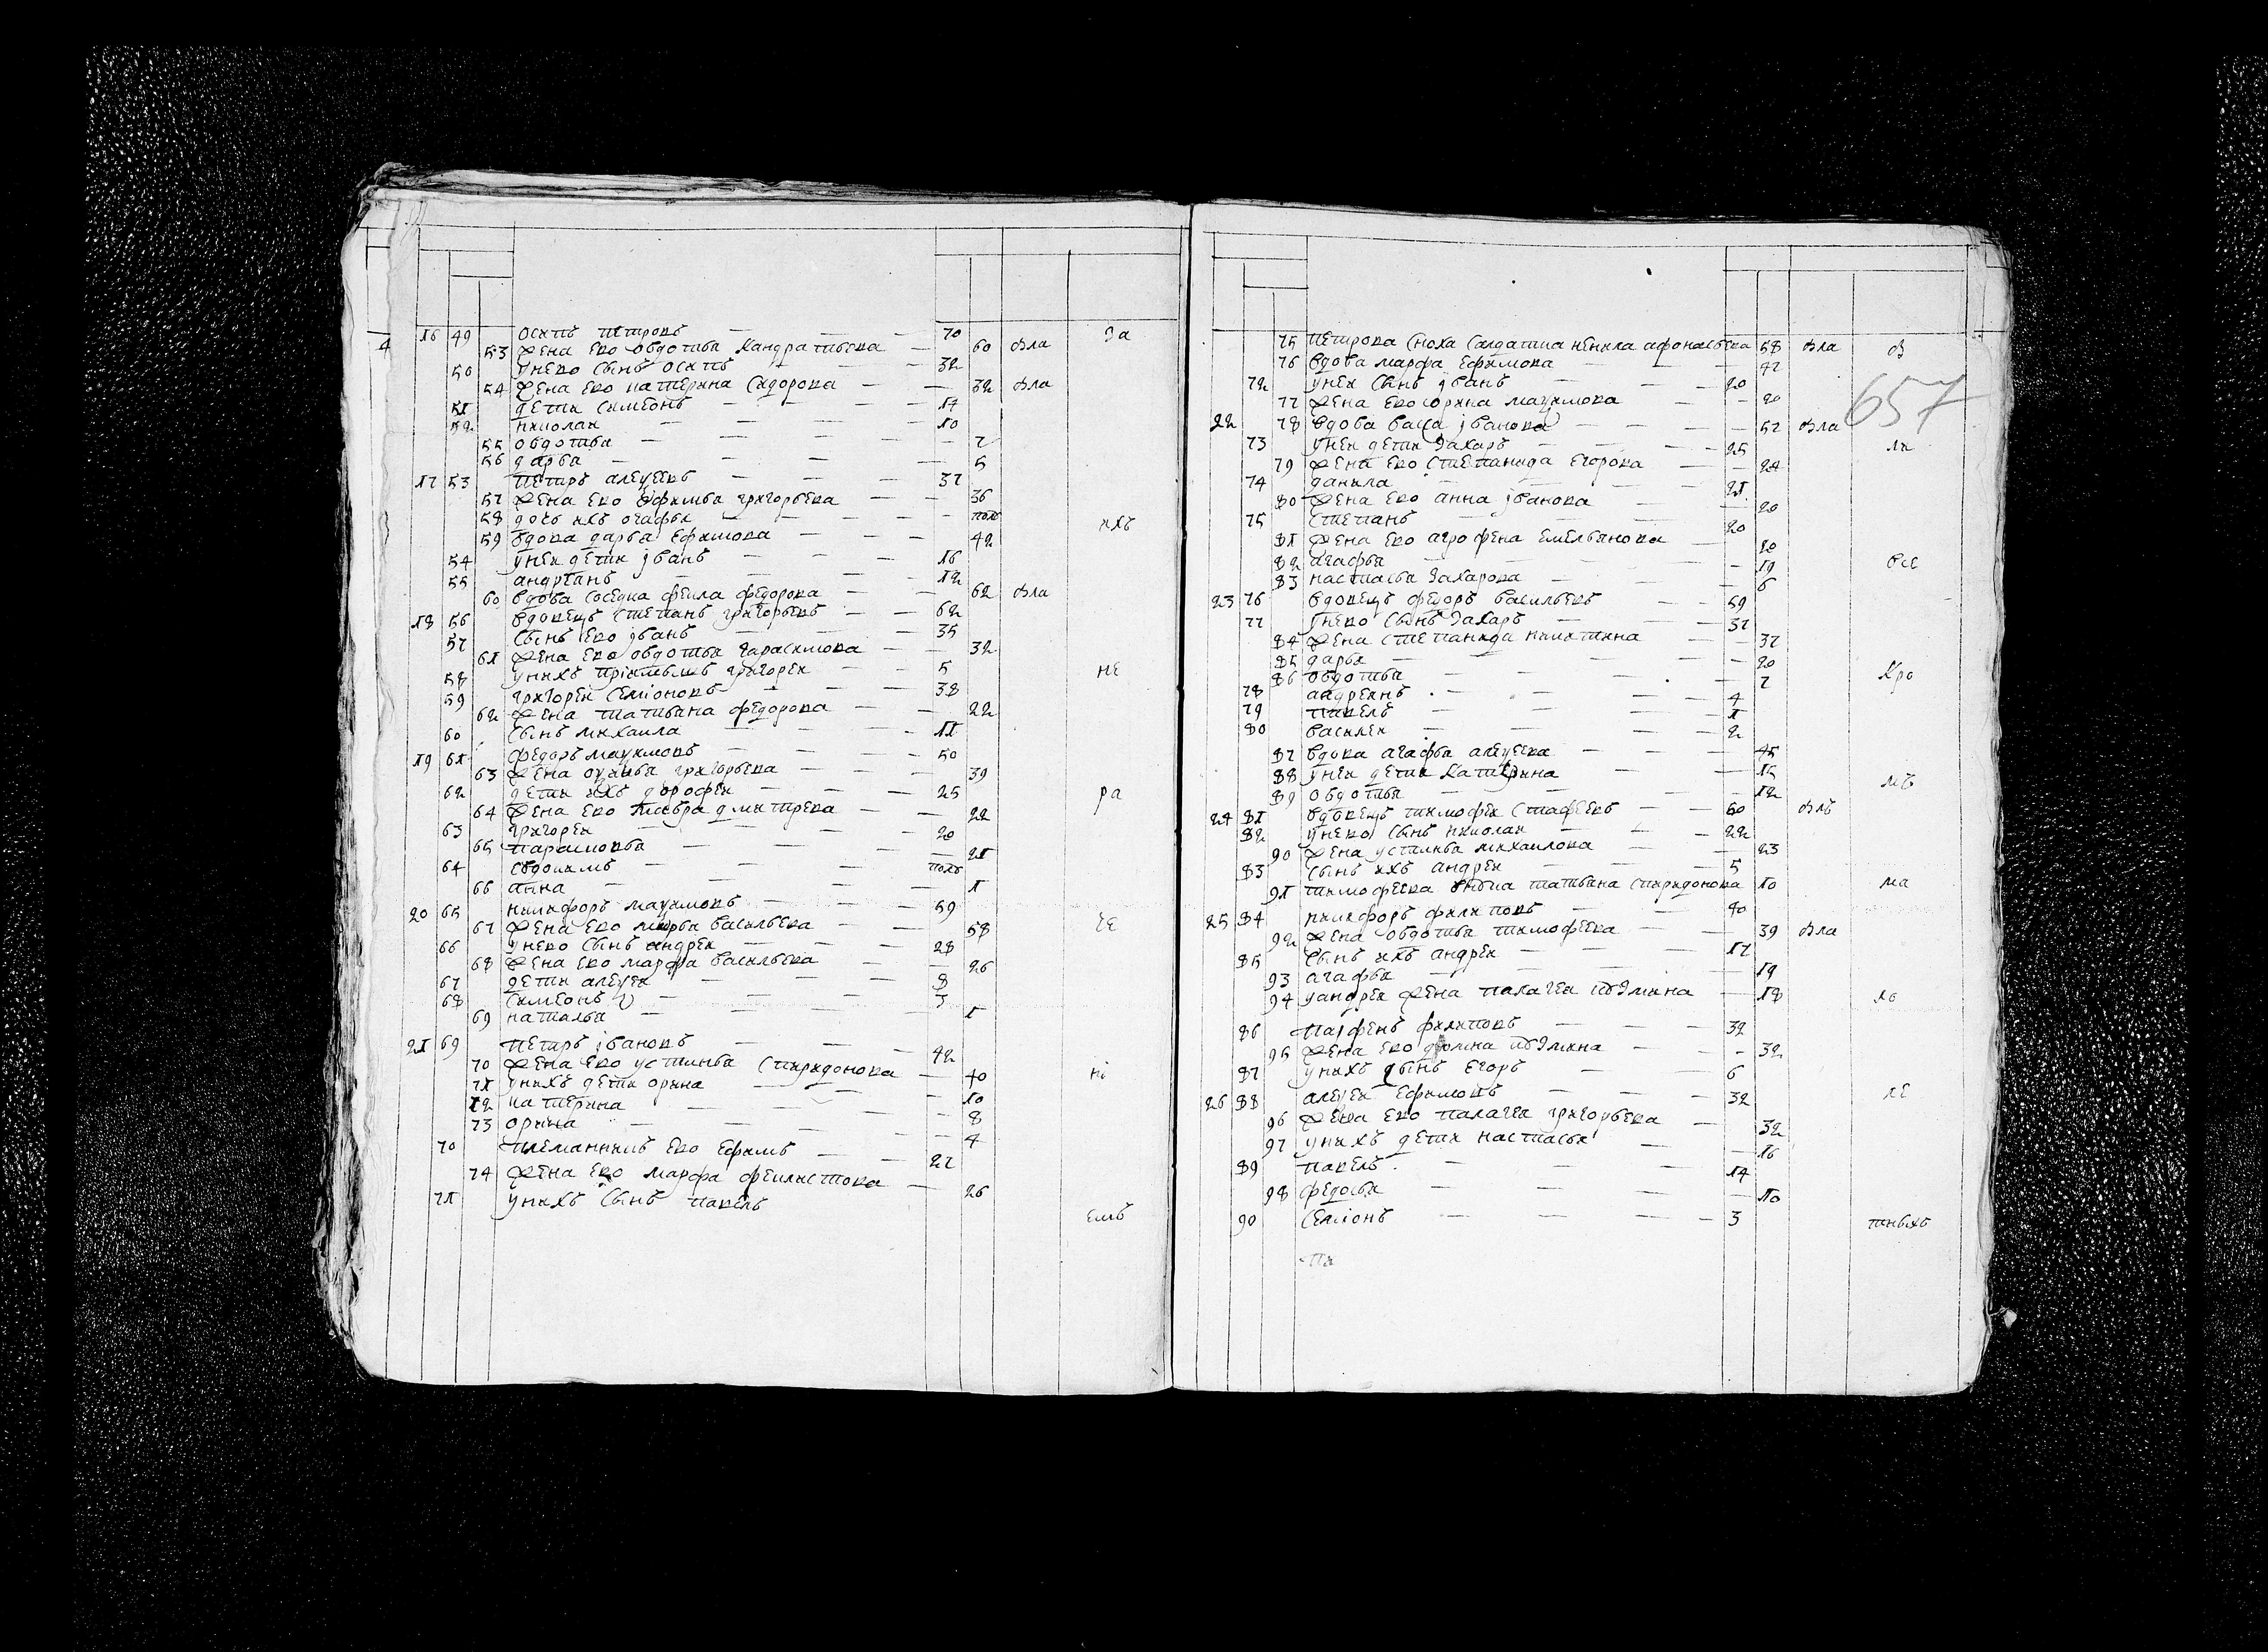 16 49 осипъ петровъ 70 За
53 жена ево овдотья кандратьева 60 Вла
50 унево сынъ осипъ 32
54 жена ево катерина сидорова 32 Вла
51 дети симеонъ 14
52 николаи 10
55 овдотья 7
56 дарья 5
17 53 петръ алеѯеевъ 37
57 жена ево ефимья григорьева 36
58 дочь ихъ огафья полъ ихъ
59 вдова дарья ефимова 42
54 унеи дети иванъ 16
55 андреянъ 12
60 вдова соседка фекла федорова 62 Вла
18 56 вдовецъ степанъ григорьевъ 62
57 сынъ ево иванъ 35
61 жена ево овдотья гарасимова 32
58 унихъ приимышъ григореи 5 не
59 григореи семионовъ 38
62 жена татьяна федорова 22
60 сынъ михаила 11
19 61 федоръ маѯимовъ 50
63 жена григорьева 39
62 дети ихъ дорофеи 25 ра
64 жена ево дмитрева 22
63 григореи 20
65 парасковья 21
64 овдокимъ полъ
66 анна 1
20 65 никифоръ маѯимовъ 59
67 жена ево марья васильева 58 че
66 унево сынъ андреи 28
68 жена ево марфа васильева 26
67 дети алеѯеи 8
68 симеонъ 3
69 наталья 1
21 69 петръ ивановъ 42
70 жена ево устинья спиридонова 40
71 унихъ дети орина 10 ні
72 катерина 8
73 орина 4
70 племянникъ ево ефимъ 27
74 жена ево марфа феклистова 26
71 унихъ сынъ павелъ
емъ
75 петрова сноха салдатка ненила афонасьева 58 Вла в
76 вдова марфа ефимова 47
72 унеи сынъ иванъ 20
77 жена ево орина маѯимова 20
657
22 78 вдова васса иванова 57 Вла
73 унеи дети захаръ 25 ли
79 жена ево степанида егорова 24
74 данила 21
80 жена ево анна иванова 20
75 степанъ 20
81 жена ево агрофена емельянова 20
82 агафья 19 все
83 настасья захарова 6
23 76 вдовецъ федоръ васильевъ 59
77 унево сынъ захаръ 37
84 жена степанида никитина 37
85 дарья 20
86 овдотья 7 Кро
78 андреянъ 4
79 павелъ 1
80 василеи 2
87 вдова агафья алеѯеева 45
88 унеи дети катерина 15
89 овдотья 12 мъ
24 81 вдовецъ тимофеи стафеевъ 60 Влъ
82 унево сынъ николаи 22
90 жена устинья михаилова 23
83 сынъ ихъ андреи 5
91 тимофеева татьяна спиридонова 10 ма
25 84 никифоръ филиповъ 40
92 жена овдотья тимофеева 39 Вла
85 сынъ ихъ андреи 17
93 агафья 19
94 уандреи жена палагея козмина 18 ло
86 парфенъ филиповъ 32
95 жена ево домна козмина 32
87 унихъ сынъ егоръ 6
26 88 алеѯеи ефимовъ 32 ле
96 жена ево палагея григорьева 32
97 унихъ дети настасья 16
89 павелъ 14
98 федосья 10
90 семионъ 3 тныхъ